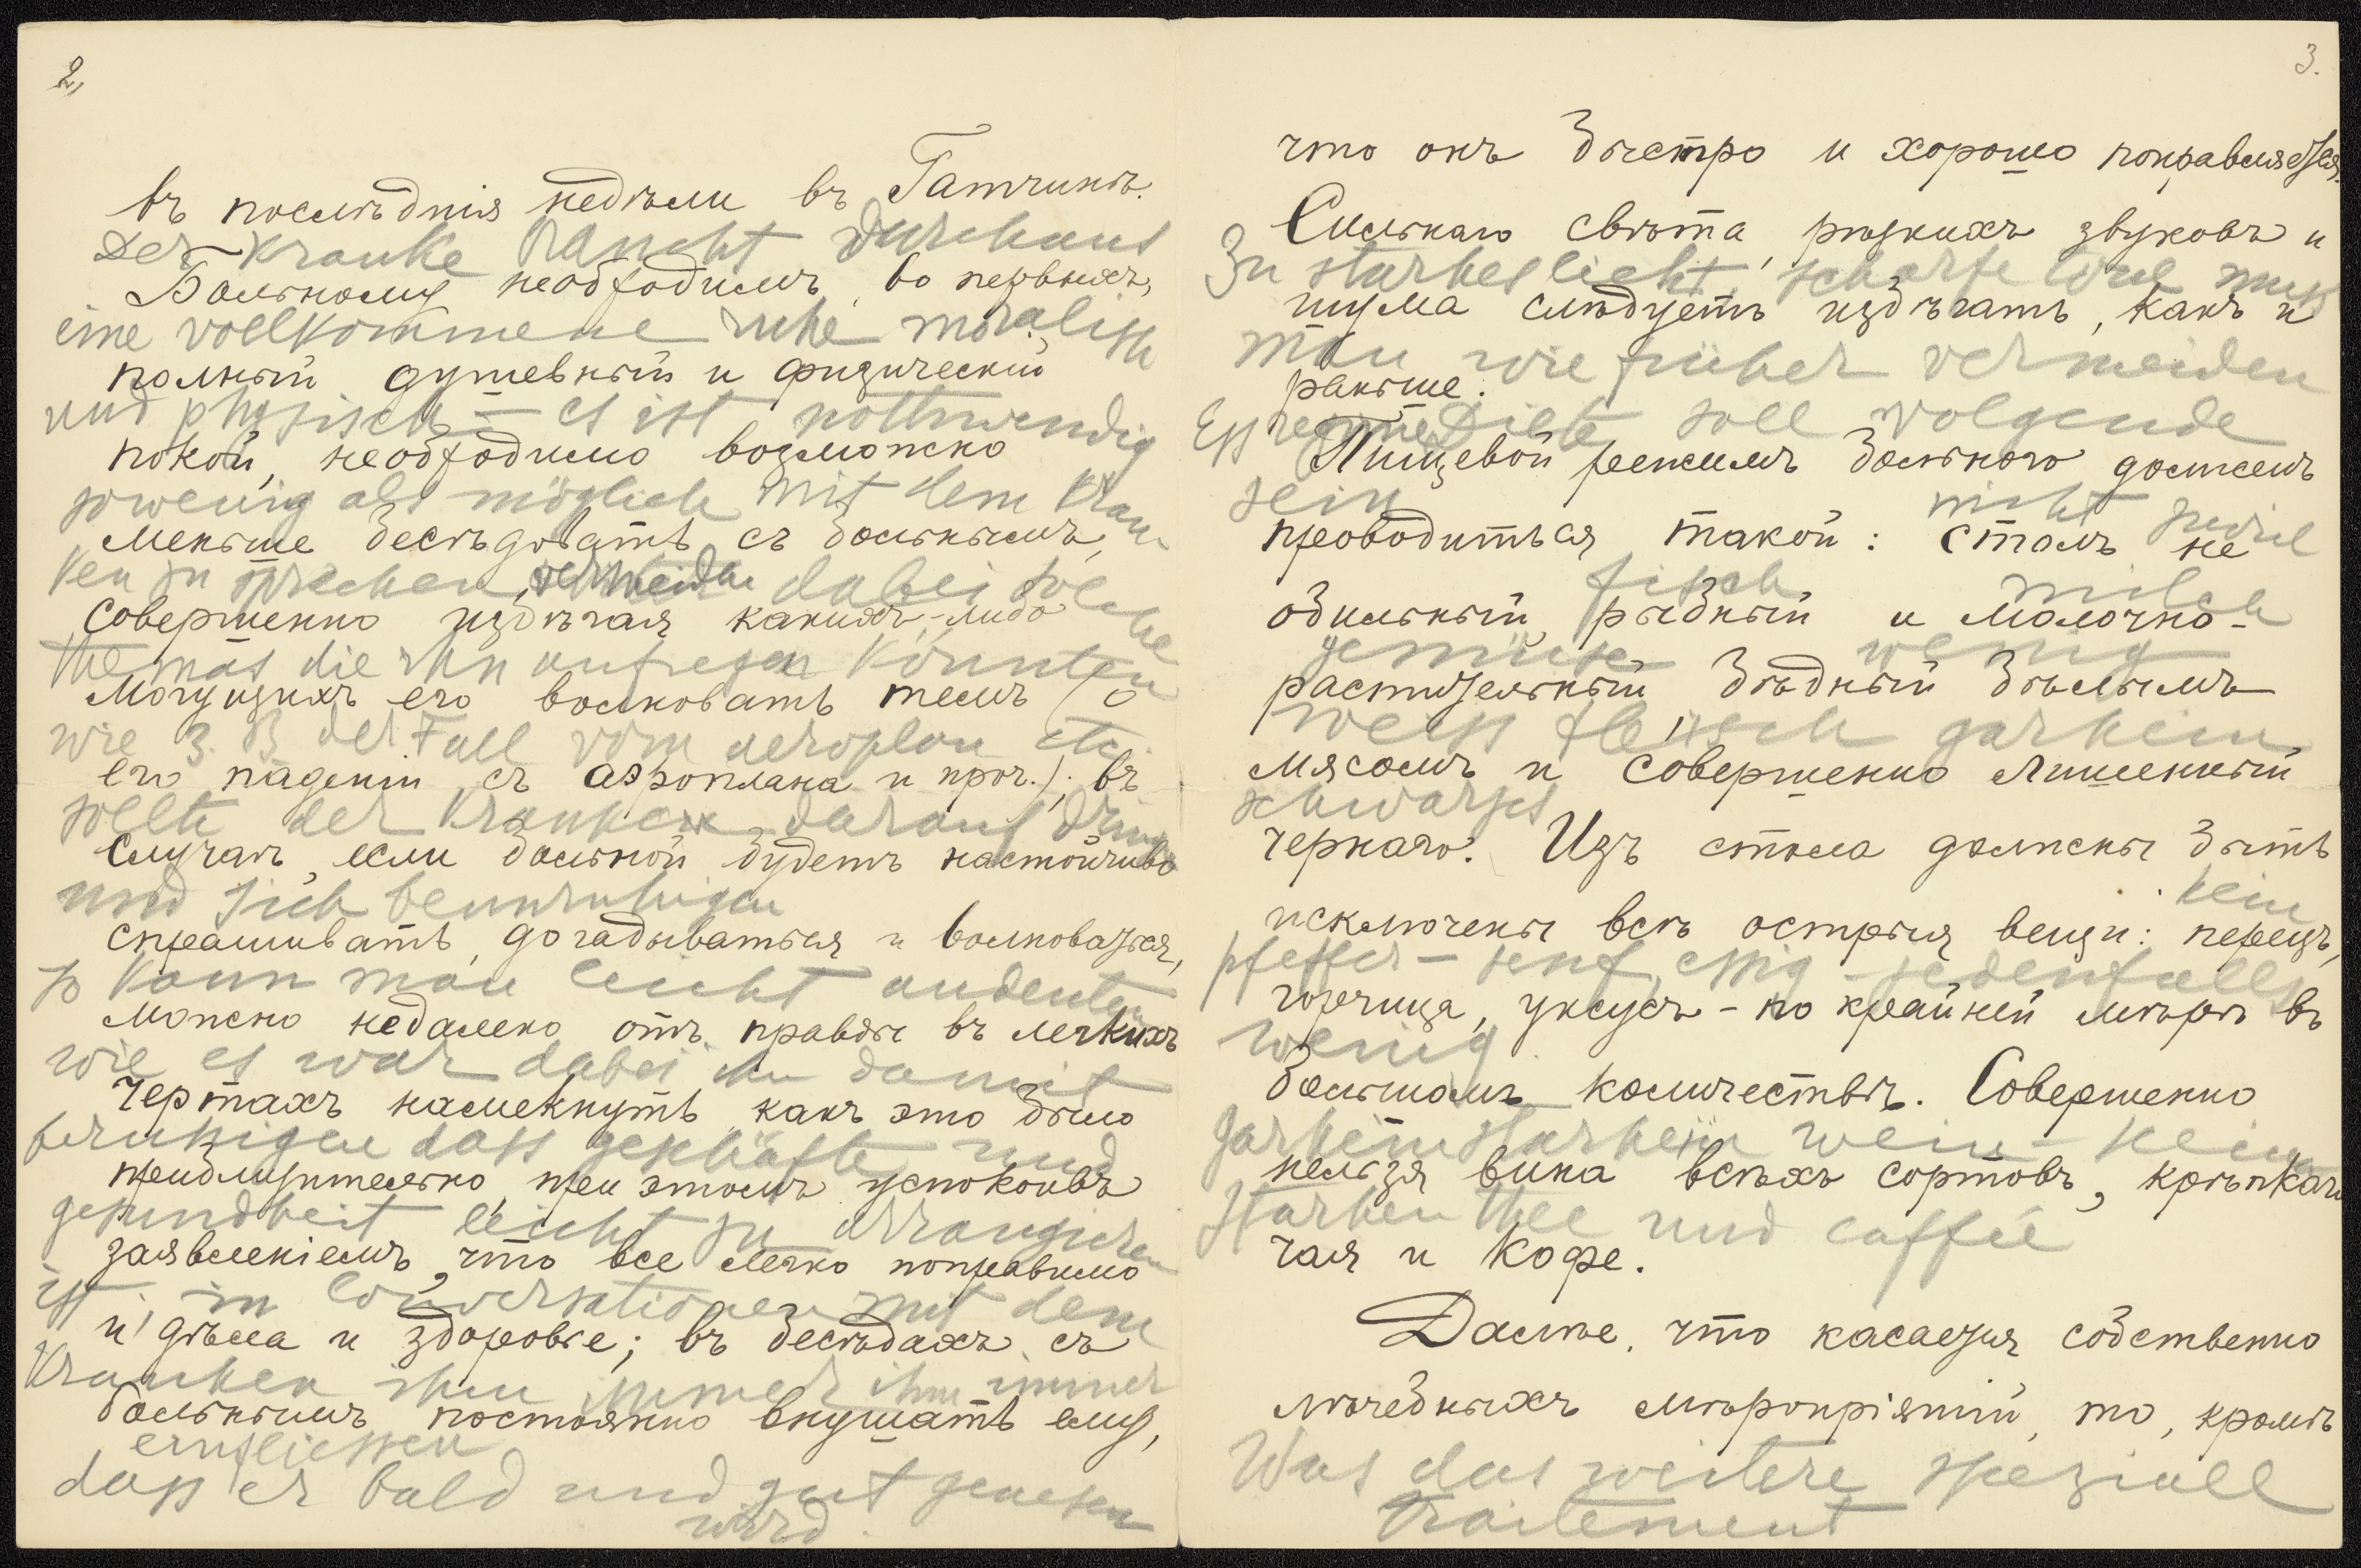 2,
въ послѣднія недѣли въ Гатчинѣ.
Der Kranke braucht durchaus
Больному необходимъ, во первыхъ,
eine vollkommene ruhe moralisch
полный душевный и физическій
und physisch – es ist nothwendig
покой, необходимо возможно
sowenig als möglich mit dem Kran
меньше бесѣдовать съ больнымъ,
ken zu sprechen, vermeide dabei solche
совершенно избѣгая какихъ-либо
themas die ihn aufregen könnten
могущихъ его волновать темъ (о
wie z. B der Fall vom aeroplan etc.
его паденіи съ аэроплана и проч.); въ
sollte der Kranke darauf dringen
случаѣ, если больной будетъ настойчиво
und sich beunruhigen
спрашивать, догадываться и волноваться,
so kann man leicht andeuten
можно недалеко отъ правды въ легкихъ
wie es war dabei ihn damit
чертахъ намекнуть, какъ это было
beruhigen dass geschäfte und
приблизительно, при этомъ успокоивъ
gesundheit leicht zu arrangieren
заявленіемъ, что все легко поправимо
ist, in Conversationen mit dem
и дѣла и здоровье; въ бесѣдахъ съ
Kranken ihm immer ihm immer
больнымъ постоянно внушать ему,
dass er bald und gut genesen
wird
3.
что онъ быстро и хорошо поправляется.
Сильнаго свѣта, рѣзкихъ звуковъ и
Zu starkes licht, scharfe töne muss
шума слѣдуетъ избѣгать, какъ и
man wie früher vermeiden
раньше.
Diete soll volgende
Пищевой режимъ больного долженъ
sein
nicht zuviel
проводиться такой: столъ не
fisch milch
обильный, рыбный и молочно-
gemüse wenig
растительный, бѣдный бѣлымъ
weiss fleisch gar kein
мясомъ и совершенно лишенный
schwarzes
чернаго. Изъ стола должны быть
kein
исключены всѣ острыя вещи: перецъ,
pfeffer – senf, essig – jedenfalls
горчица, уксусъ – по крайней мѣрѣ въ
wenig
большомъ количествѣ. Совершенно
gar kein starken wein – kein
нельзя вина всѣхъ сортовъ, крѣпкаго
starken thee und caffee
чая и кофе.
Далѣе, что касается собственно
лѣчебныхъ мѣропріятій, то, кромѣ
Was das weitere speziall
traitement